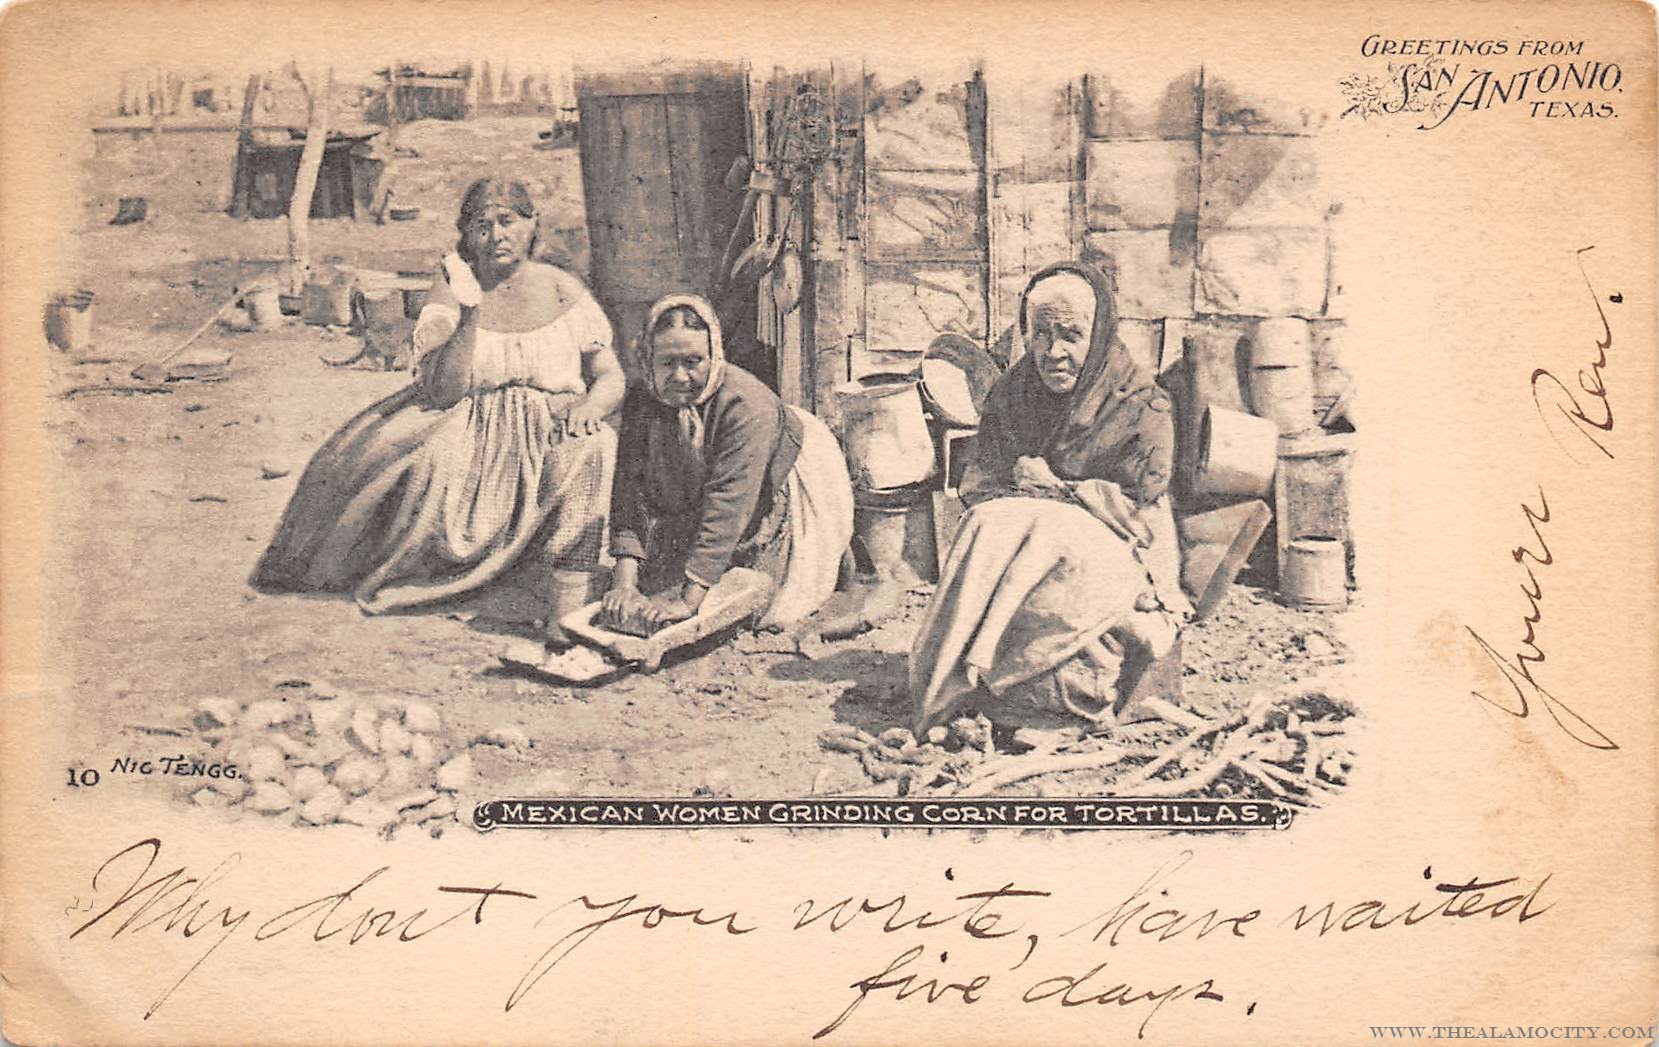 GREETINGS FROM
SAN ANTONIO,
TEXAS.
10 NIC TENGG.
MEXICAN WOMEN GRINDING CORN FOR TORTILLAS.
Why dont you write, have waited
five days.
Your
WWW.THEALAMOCITY.COM